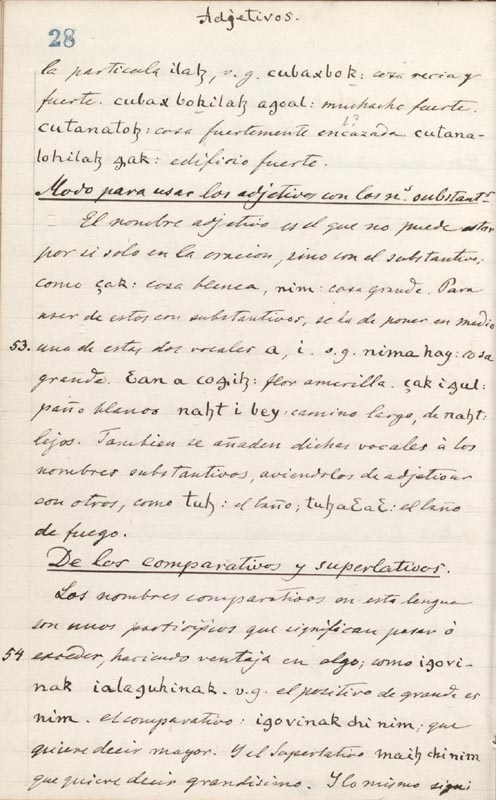 Adjetivos.
28
la particula ilaꜩ, v. g. cubaxboꜩ: cosa recia y
fuerte. cubax boꜩilaꜩ agoal: muchacho fuerte.
cutanatoꜩ: cosa fuertemente encazada cutana-
loꜩilaꜩ ꜫak: edificio fuerte.
Modo para usar los adjetivos con los n.s substant.s
El nombre adjetivo es el que no puede estar
por si solo en la oracion, sino con el substantivo;
como çak: cosa blanca, nim: cosa grande. Para
usar de estos con substantivos, se ha de poner en medio
53. una de estas dos vocales a, i. v. g. nima hay: cosa
grande. Ɛan a coꜫiꜩ: flor amarilla. çak i ꜫul:
paño blanco naꜩt i bey: camino largo, de naꜩt:
lejos. Tambien se añaden dichas vocales à los
nombres substantivos, aviendolos de adjetivar
con otros, como tuꜩ: el baño; tuꜩaƐaƐ: el baño
de fuego.
De los comparativos y superlativos.
Los nombres comparativos en esta lengua
son unos participios que significan pasar ò
54 exceder, haciendo ventaja en algo; como iꜫovi-
nak ialaꜫuhinak. v. g. el positivo de grande es
nim. el comparativo: iꜫovinak chi nim; que
quiere decir mayor. Y el Superlativo maih chi nim
que quiere decir grandisimo. Y lo mismo signi